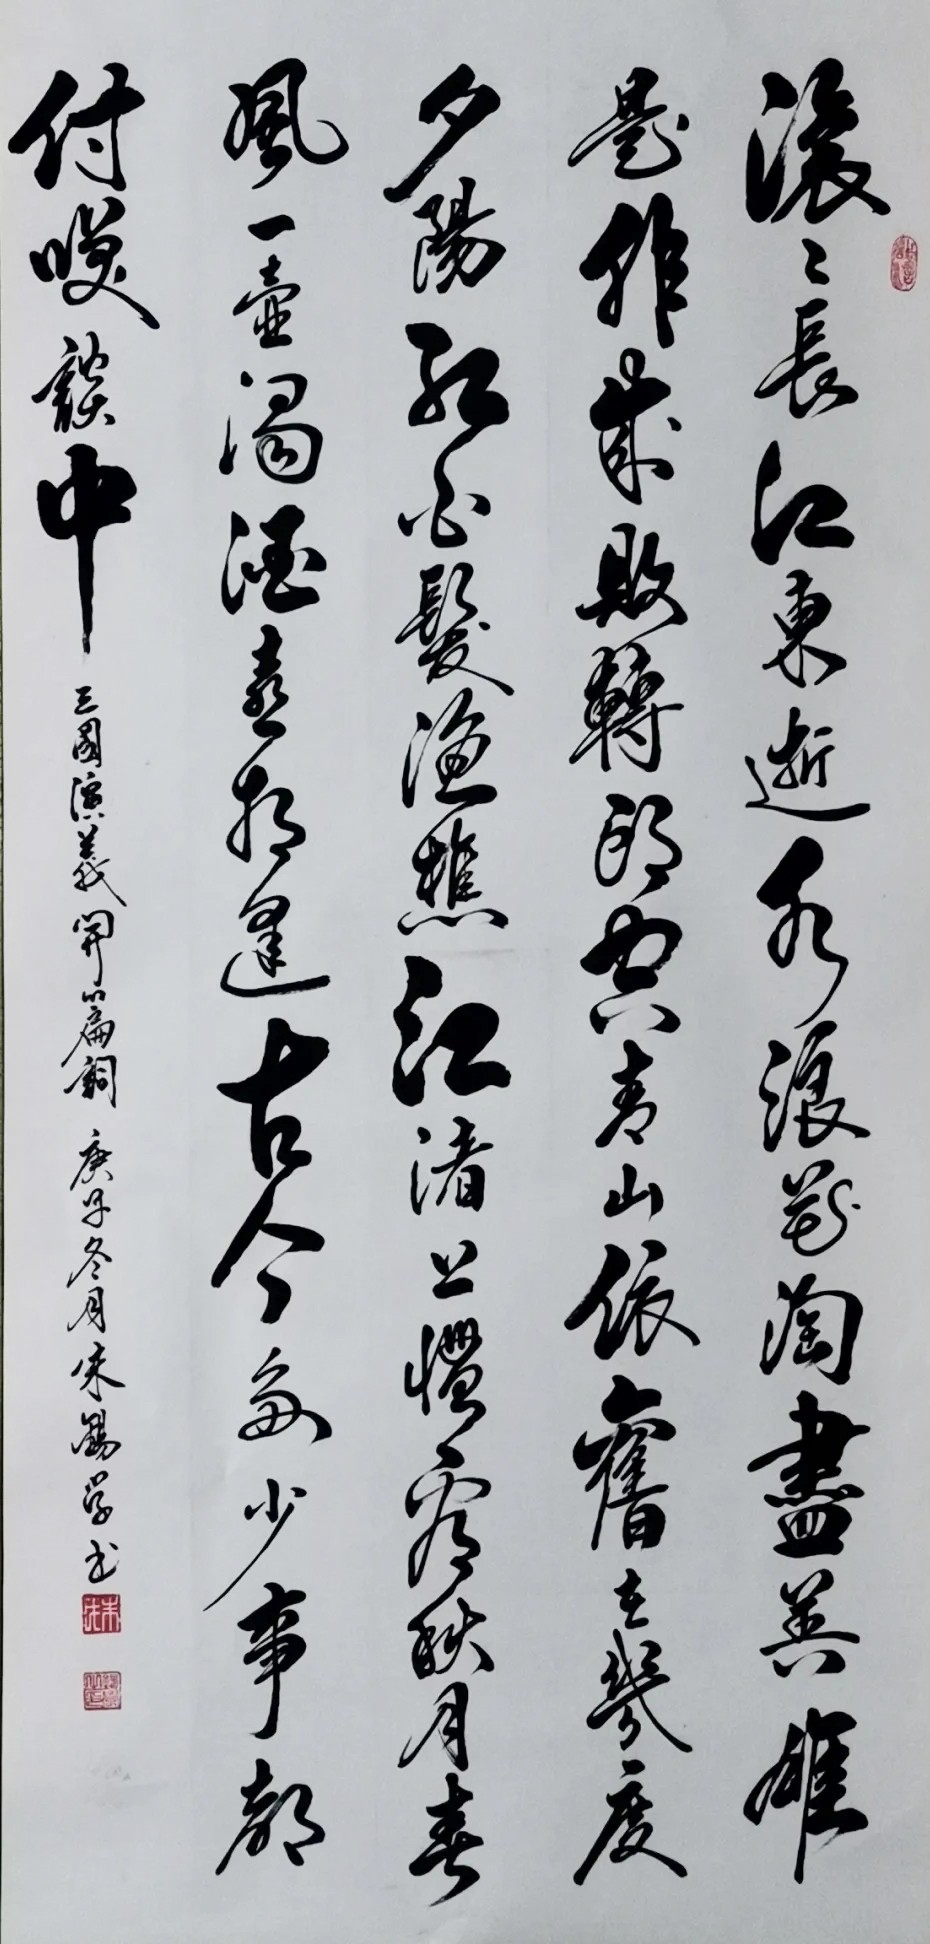 滚〻長江東逝水浪花淘盡英雄
是非成敗轉頭空青山依舊在幾度
夕陽紅白髮漁樵江渚上慣看秋月春
風一壺濁酒喜相逢古今多少事都
付笑談中
三國演義開篇詞 庚子冬月朱錫学书